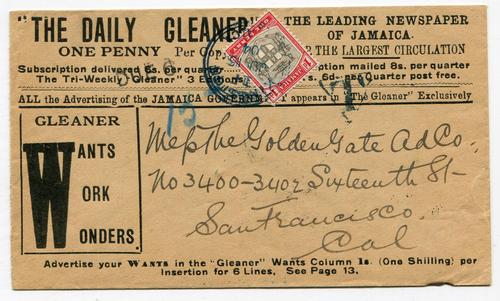 "THE DAILY GLEANER"
ONE PENNY Per Cop
THE LEADING NEWSPAPER
OF JAMAICA.
THE LARGEST CIRCULATION
Subscription delivered 6s. per quarter
The Tri-Weekly "Gleaner" 3 Editions
mailed 8s. per quarter
6d. per Quarter post free.
ALL the Advertising of the JAMAICA GOVERNMENT appears in "The Gleaner" Exclusively
T
15
GLEANER
WANTS
WORK
WONDERS.
Mess The Golden Gate Ad Co.
No 3400-3402 Sixteenth St
San Francisco.
Cal
Advertise your WANTS in the "Gleaner" Wants Column 1s. (One Shilling) per
Insertion for 6 Lines. See Page 13.